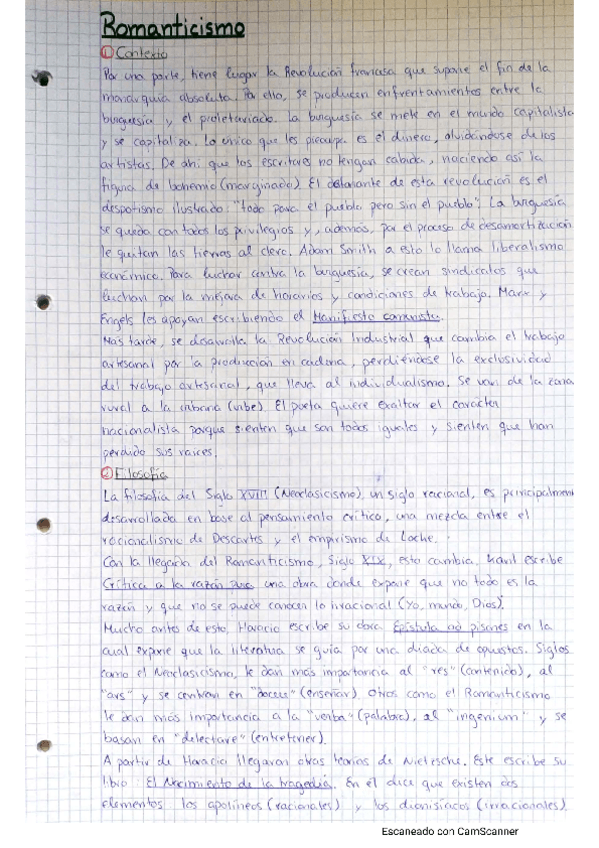 Romanticismo
① Contexto
Por una parte, tiene lugar la Revolución francesa que supone el fin de la
monarquía absoluta. Por ello, se producen enfrentamientos entre la
burguesía y el proletariado. La burguesía se mete en el mundo capitalista
y se capitaliza. Lo único que les preocupa es el dinero, olvidándose de los
artistas. De ahí que los escritores no tengan cabida, naciendo así la
figura de bohemio (marginado). El detonante de esta revolución es el
despotismo ilustrado: "todo para el pueblo pero sin el pueblo". La burguesía
se queda con todos los privilegios y, además, por el proceso de desamortización
le quitan las tierras al clero. Adam Smith a esto lo llama liberalismo
económico. Para luchar contra la burguesía, se crean sindicatos que
luchan por la mejora de horarios y condiciones de trabajo. Marx y
Engels les apoyan escribiendo el Manifiesto comunista.
Más tarde, se desarrolla la Revolución Industrial que cambia el trabajo
artesanal por la producción en cadena, perdiéndose la exclusividad
del trabajo artesanal, que lleva al individualismo. Se van de la zona
rural a la urbana (urbe). El poeta quiere exaltar el carácter
nacionalista porque sienten que son todos iguales y sienten que han
perdido sus raíces.
② Filosofía
La filosofía del Siglo XVIII (Neoclasicismo), un siglo racional, es principalmente
desarrollada en base al pensamiento crítico, una mezcla entre el
racionalismo de Descartes y el empirismo de Locke.
Con la llegada del Romanticismo, Siglo XIX, esto cambia. Kant escribe
Crítica a la razón pura una obra donde expone que no todo es la
razón y que no se puede conocer lo irracional (Yo, mundo, Dios).
Mucho antes de esto, Horacio escribe su obra Epístula ad pisones en la
cual expone que la literatura se guía por una díada de opuestos. Siglos
como el Neoclasicismo, le dan más importancia al "res" (contenido), al
"ars" y se centran en "docere" (enseñar). Otros como el Romanticismo
le dan más importancia a la "verba" (palabra), al "ingenium" y se
basan en "delectare" (entretener).
A partir de Horacio llegaran otras teorías de Nietzsche. Este escribe su
libro: El Nacimiento de la tragedia. En el dice que existen dos
elementos: los apolíneos (racionales) y los dionisíacos (irracionales).
Escaneado con CamScanner